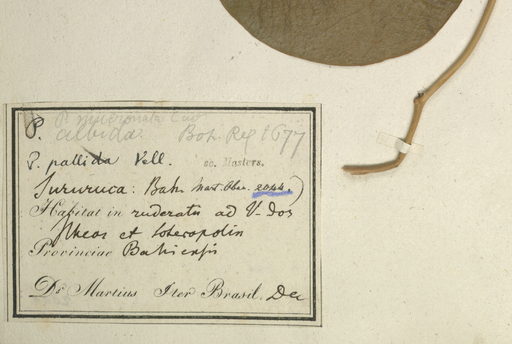 P. mucronata
P. albida. Bot. Reg 1677
P. pallida Vell. ec. Masters.
Sururuca: Bah. Mart. Obs. 2044.)
Habitat in ruderatis ad V. dos
Ilheos et Soteropolin
Provinciae Bahiensis
Dr Martius Iter Brasil. Dec